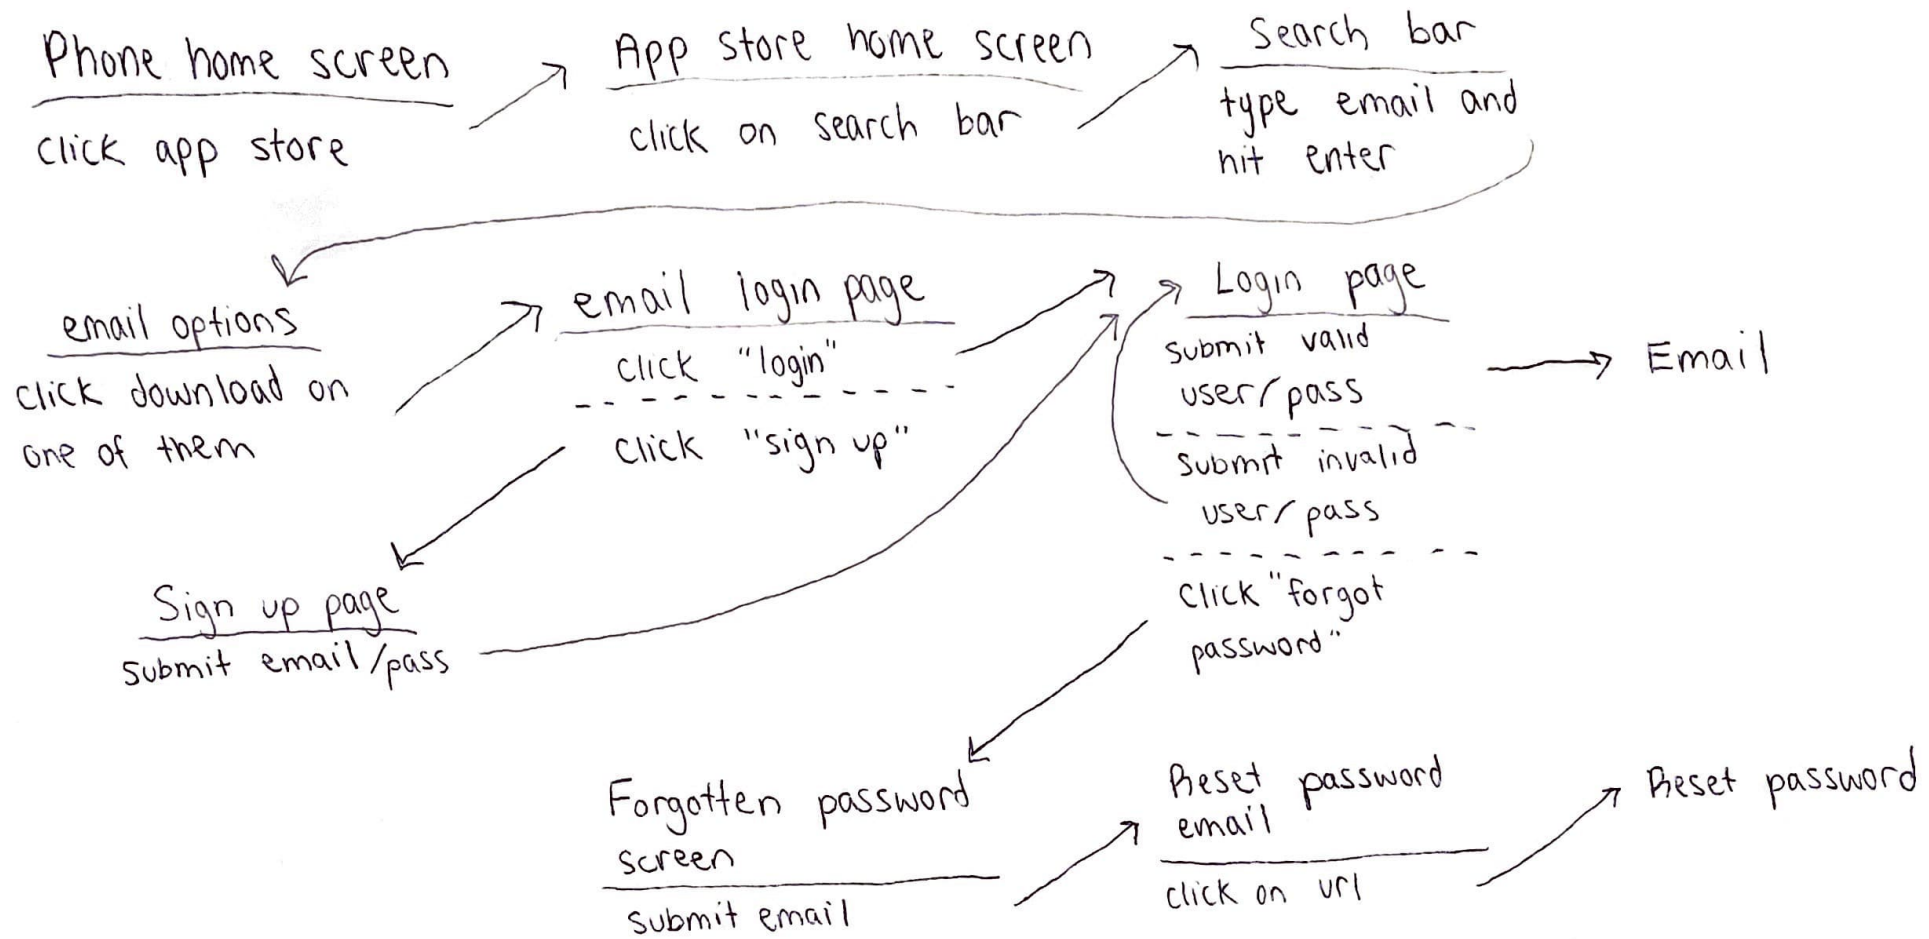 Phone home screen
click app store
App store home screen
click on search bar
Search bar
type email and
hit enter
email options
click download on
one of them
email login page
click "login"
click "sign up"
Login page
submit valid
user/pass
submit invalid
user/pass
click "forgot
password"
Email
Sign up page
submit email/pass
Forgotten password
screen
submit email
Reset password
email
click on url
Reset password